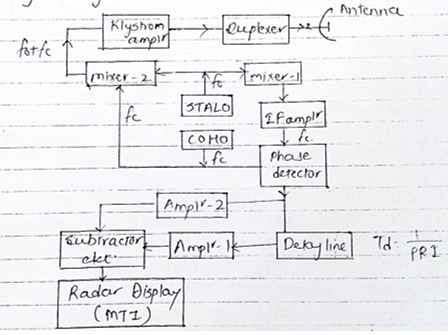 Antenna
Klystron
amplr
Duplexer
fo+fc
mixer-2
fo
mixer-1
STALO
fc
IF amplr
COHO
fc
fc
Phase
detector
Amplr-2
Subtractor
ckt.
Amplr-1
Delay line
Td = 1/PRI
Radar Display
(MTI)